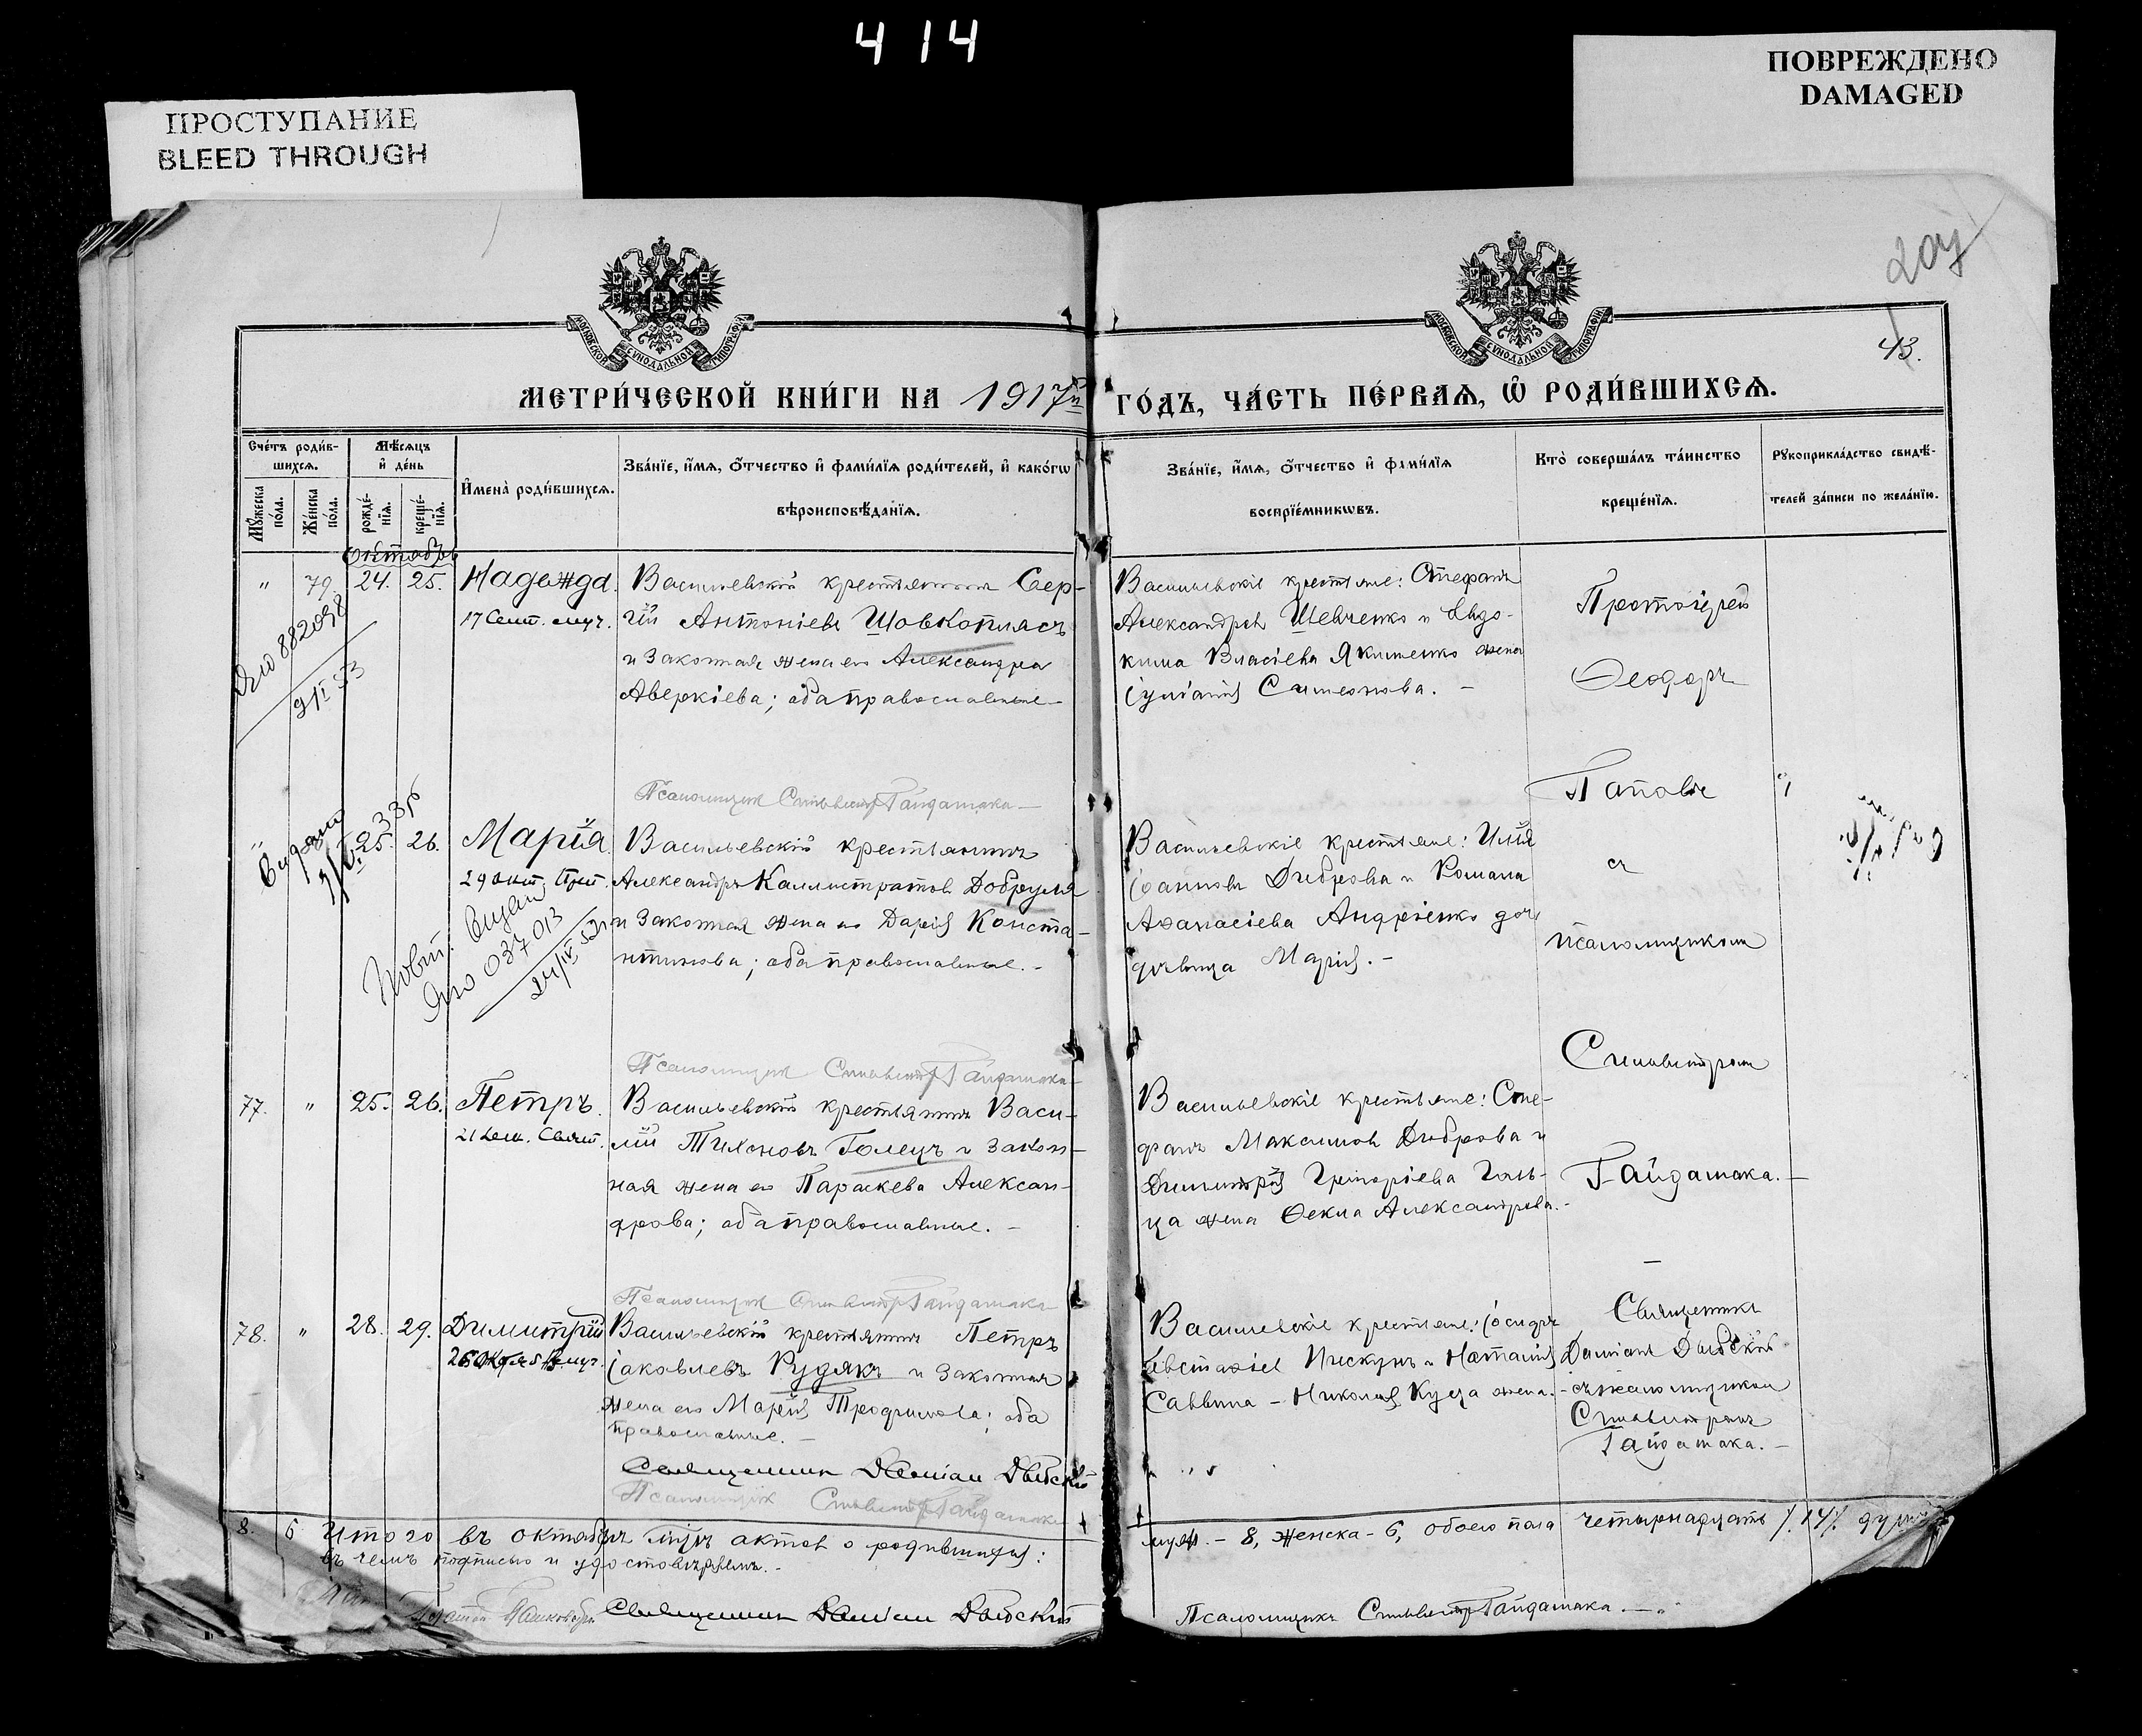 414
ПРОСТУПАНИЕ
BLEED THROUGH
ПОВРЕЖДЕНО
DAMAGED
43.
МОСКОВСКОЙ СѴНОДАЛЬНОЙ ТИПОГРАФІИ
МОСКОВСКОЙ СѴНОДАЛЬНОЙ ТИПОГРАФІИ
МЕТРИ́ЧЕСКОЙ КНИ́ГИ НА 1917й ГО́ДЪ, ЧА́СТЬ ПЕ́РВАѦ, Ѽ РОДИ́ВШИХСѦ.
Сче́тъ роди́в-
шихсѧ.
Мѣ́сѧцъ
и҆ де́нь
Мꙋ́жеска
по́ла.
Же́нска
по́ла.
рожде́-
нїѧ.
креще́-
нїѧ.
И҆мена̀ роди́вшихсѧ.
Зва́нїе, и҆́мѧ, ѻ҆́тчество и҆ фами́лїѧ роди́телей, и҆ како́гѡ
вѣроисповѣ́данїѧ.
Зва́нїе, и҆́мѧ, ѻ҆́тчество и҆ фами́лїѧ
воспрїе́мникѡвъ.
Кто̀ соверша́лъ та́инство
креще́нїѧ.
Рꙋкоприкла́дство свидѣ́-
телей за́писи по жела́нїю.
Октябрь
" 79. 24. 25. Надежда.
17 Сент. муч.
Васильевскій крестьянинъ Сер-
гій Антоніевъ Шовкоплясъ
и законная жена его Александра
Аверкіева; оба православные.
Васильевскіе крестьяне: Стефанъ
Александровъ Шевченко и Евдо-
кима Власіева Якименко жена
Іуліанія Симеонова. –
Протоіерей
Ѳеодоръ
882098
9/II 53
Псаломщик Сильвестръ Гайдамака –
Видано
" 25. 26. Марія.
29 окт. Прп.
Васильевскій крестьянинъ
Александръ Каллистратовъ Добруля
и законная жена его Дарія Конста-
нтинова; оба православные. –
Васильевскіе крестьяне: Илія
Іоанновъ Диброва и Романа
Аѳанасіева Андріенко дочь
дѣвица Марія. –
Поповъ
съ
псаломщикомъ
Повт. Видано
037013
24/IV 53
Псаломщик Сильвестръ Гайдамака
77. " 25. 26. Петръ.
21 Дек. Свят.
Васильевскій крестьянинъ Васи-
лій Тихоновъ Голецъ и закон-
ная жена его Параскева Алексан-
дрова; оба православные. –
Васильевскіе крестьяне: Сте-
фанъ Максимовъ Диброва и
Димитрія Григоріева Голь-
ца жена Ѳекла Александрова. –
Сильвестромъ
Гайдамака. –
Псаломщик Сильвестръ Гайдамака
78. " 28. 29. Димитрій
26 Октября Вмуч.
Васильевскій крестьянинъ Петръ
Іаковлевъ Рудякъ и законная
жена его Марія Трофимова; оба
православные. –
Васильевскіе крестьяне: Іосифъ
Евстаѳіев Пискунъ и Наталія
Саввина – Николая Куца жена. –
Священникъ
Даміанъ
съ псаломщикомъ
Сильвестромъ
Гайдамака. –
Священник Даміан
Псаломщик Сильвестръ Гайдамака
8. 6 Итого въ октябрѣ м‑цѣ актов о родившихся: муж. – 8, женска – 6, обоего пола четырнадцать /.14/. душъ
въ чемъ подписью и удостовѣряемъ. –
Священник Даміан
Псаломщикъ Сильвестръ Гайдамака. –